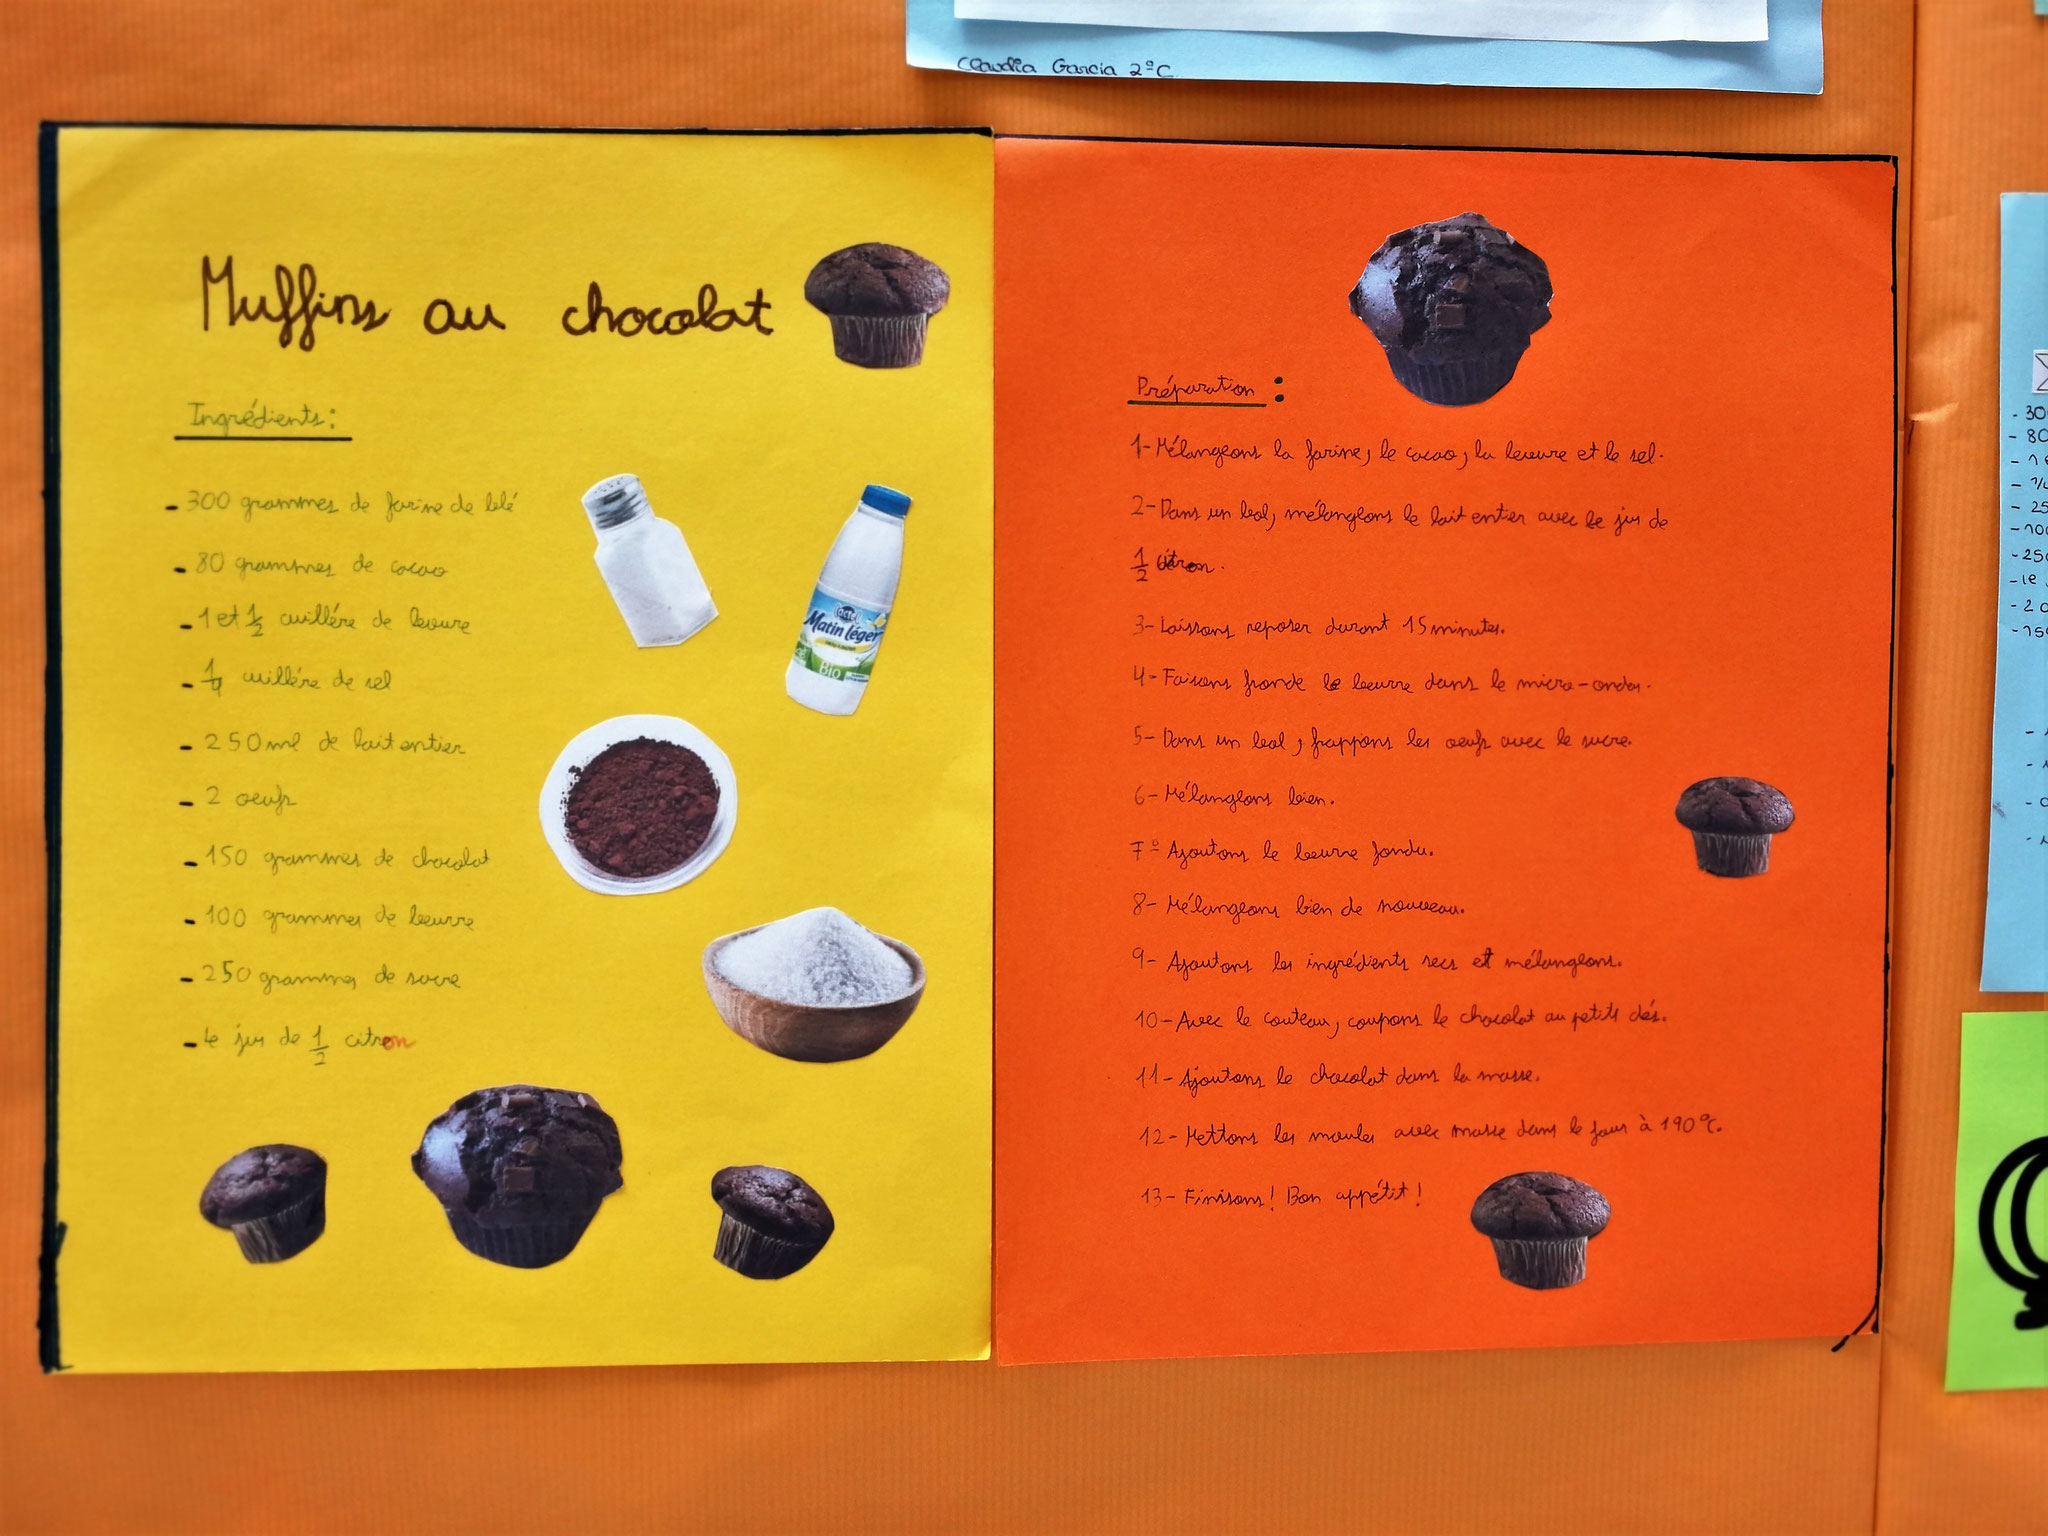 Claudia Garcia 2ºC
Muffins au chocolat
Ingrédients:
- 300 grammes de farine de blé
- 80 grammes de cacao
- 1 et 1/2 cuillére de levure
- 1/4 cuillére de sel
- 250ml de lait entier
- 2 oeufs
- 150 grammes de chocolat
- 100 grammes de beurre
- 250 grammes de sucre
- Le jus de 1/2 citron
actel
Matin léger
Bio
Préparation :
1- Mélangeons la farine, le cacao, la levure et le sel.
2- Dans un bol, mélangeons le lait entier avec le jus de
1/2 citron.
3- Laissons reposer durant 15 minutes.
4- Faisons fronde le beurre dans le micro-ondes.
5- Dans un bol, frappons les oeufs avec le sucre.
6- Mélangeons bien.
7º Ajoutons le beurre fondu.
8- Mélangeons bien de nouveau.
9- Ajoutons les ingrédients secs et mélangeons.
10- Avec le couteau, coupons le chocolat au petits dés.
11- Ajoutons le chocolat dans la masse.
12- Mettons les moules avec masse dans le four à 190ºC.
13- Finisons! Bon appétit!
- 80
- 250
- 150